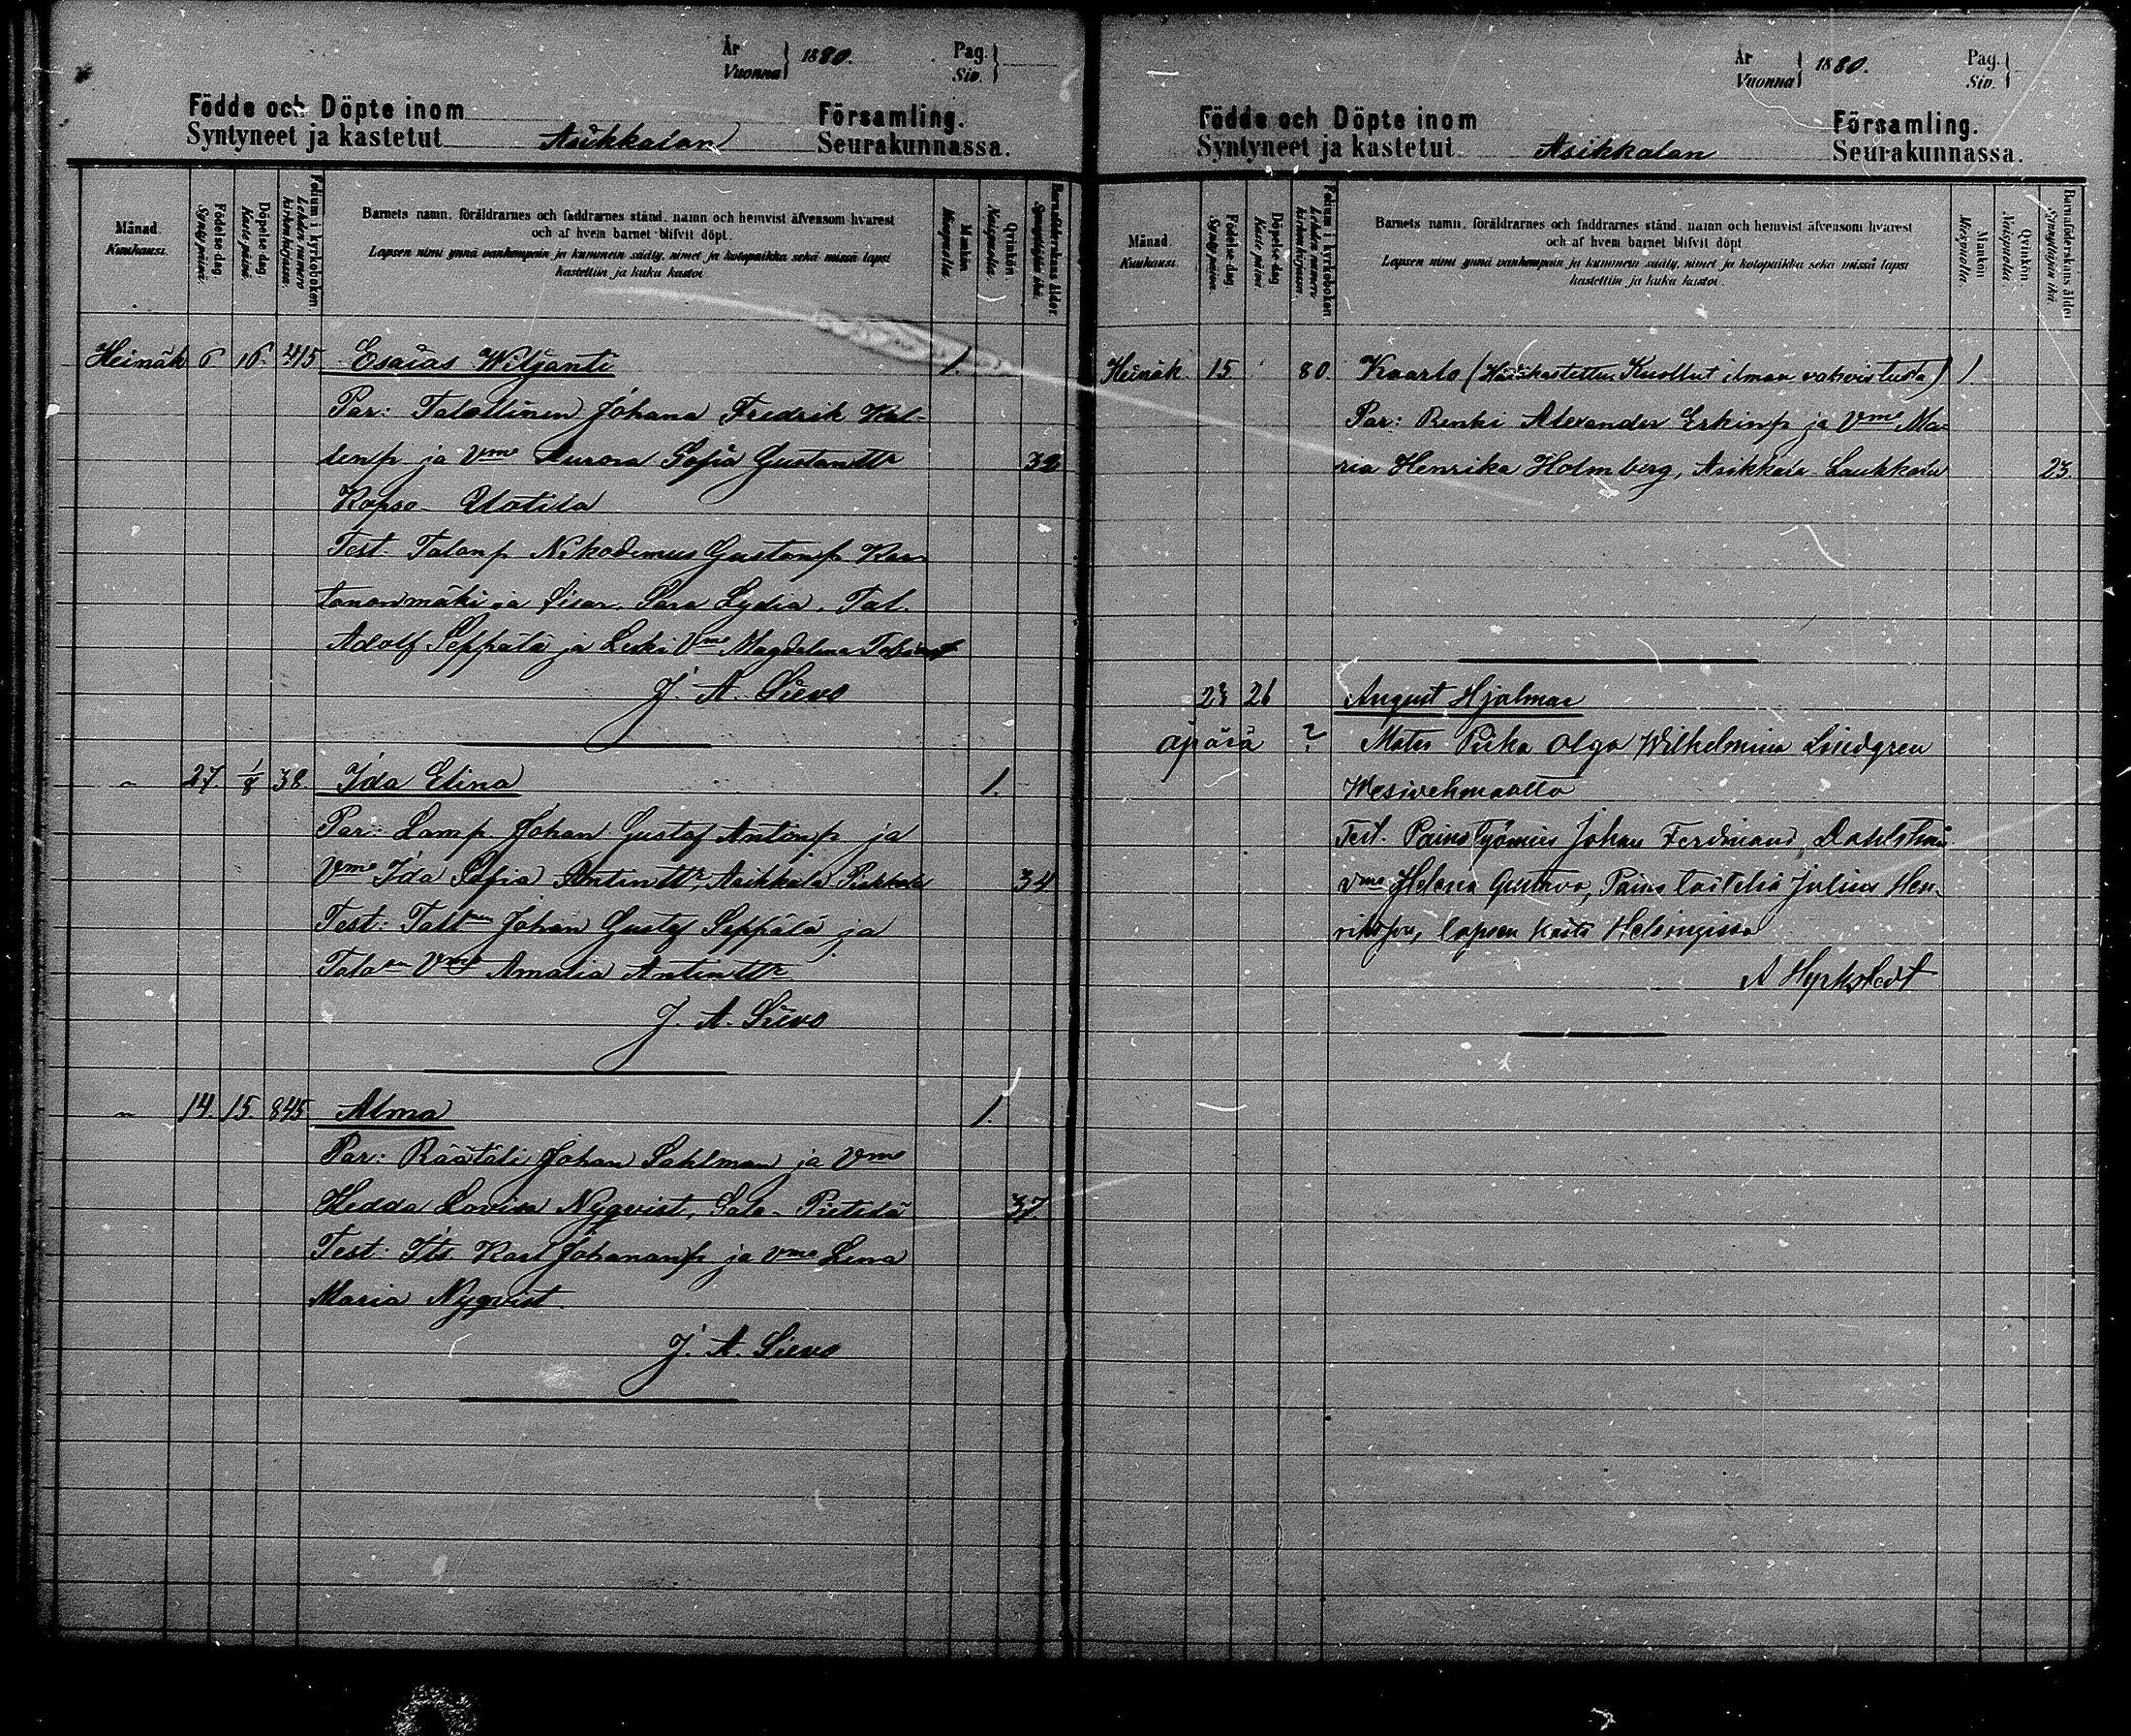 År
Vuonna } 1880.
Pag.
Siv. }
Födde och Döpte inom
Syntyneet ja kastetut Asikkalan
Församling.
Seurakunnassa.
Månad. Kuukausi.
Födelse-dag. Syntypäivä.
Döpelse-dag. Kaste-päivä.
Folium i kyrkoboken. Lehden numero kirkonkirjassa.
Barnets namn, föräldrarnes och faddrarnes stånd, namn och hemvist äfvensom hvarest
och af hvem barnet blifvit döpt.
Lapsen nimi ynnä vanhempain ja kummein sääty, nimet ja kotopaikka sekä missä lapsi
kastettiin ja kuka kastoi.
Mankön. Miespuolia.
Qvinkön. Naispuolia.
Barnaföderskans ålder. Synnyttäjän ikä.
Heinäk 6. 16. 415 Esaias Wiljanti 1.
Par: Talollinen Johana Fredrik Kal-
lenp. ja Vmo Aurora Sofia Gustantr 32
Kopso- Uotila
Test. Talonp. Nikodemus Gustanp. Kar-
tanonmäki ja sisar Sara Lydia. Tal.
Adolf Seppälä ja Leski Vmo Magdelena
J. A. Sievo
" 27. 1/8 38. Ida Elina 1.
Par: Lamp. Johan Gustaf Antinp. ja
Vmo Ida Sofia Antintr, Asikkala 34
Test: Johan Gustaf Seppälä ja
Talon Vmo Amalia Antintr
J. A. Sievo
" 14. 15. 845 Alma 1.
Par: Räätäli Johan Sahlman ja Vmo
Hedda Lovisa Nyqvist, Salo- Pietilä 37.
Test: Its. Karl Johananp. ja Vmo Lena
Maria Nyqvist.
J. A. Sievo
År
Vuonna } 1880.
Pag.
Siv. }
Födde och Döpte inom
Syntyneet ja kastetut Asikkalan
Församling.
Seurakunnassa.
Månad. Kuukausi.
Födelse-dag. Syntypäivä.
Döpelse-dag. Kaste-päivä.
Folium i kyrkoboken. Lehden numero kirkonkirjassa.
Barnets namn, föräldrarnes och faddrarnes stånd, namn och hemvist äfvensom hvarest
och af hvem barnet blifvit döpt
Lapsen nimi ynnä vanhempain ja kummein sääty, nimet ja kotopaikka sekä missä lapsi
kastettiin ja kuka kastoi.
Mankön. Miespuolia.
Qvinkön. Naispuolia.
Barnaföderskans ålder. Synnyttäjän ikä.
Heinäk 15 80. Kaarlo (Hätäkastettu, Kuollut ilman vahvistusta) 1.
Par: Renki Alexander Erkinp. ja Vmo Ma-
ria Henrika Holmberg, Asikkala Laukkala 23.
23 26 August Hjalmar
äpärä ? Mater Piika Olga Wilhelmina Lindgren
Wesivehmaalta
Test. Johan Ferdinand Dahlström
vmo Helena Gustava, Julius Hen-
rikson, lapsen kasti Helsingissä
A Hyrkstedt